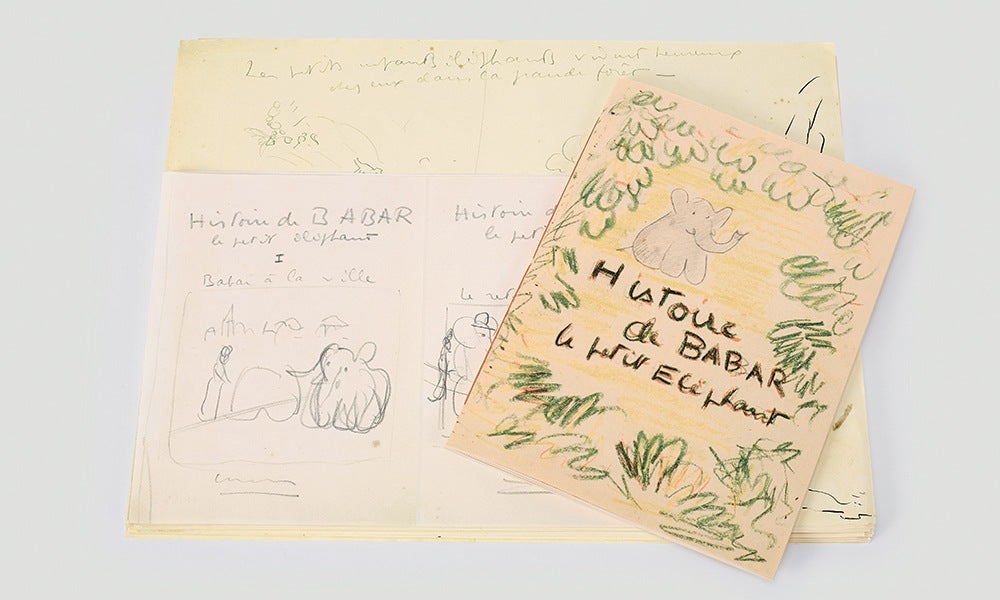 Les petits enfants éléphants vivent heureux
chez eux dans la grande forêt —
Histoire de BABAR
le petit éléphant
I
Babar à la ville
Histoire d
le pet
Le ret
Histoire
de BABAR
le petit Eléphant